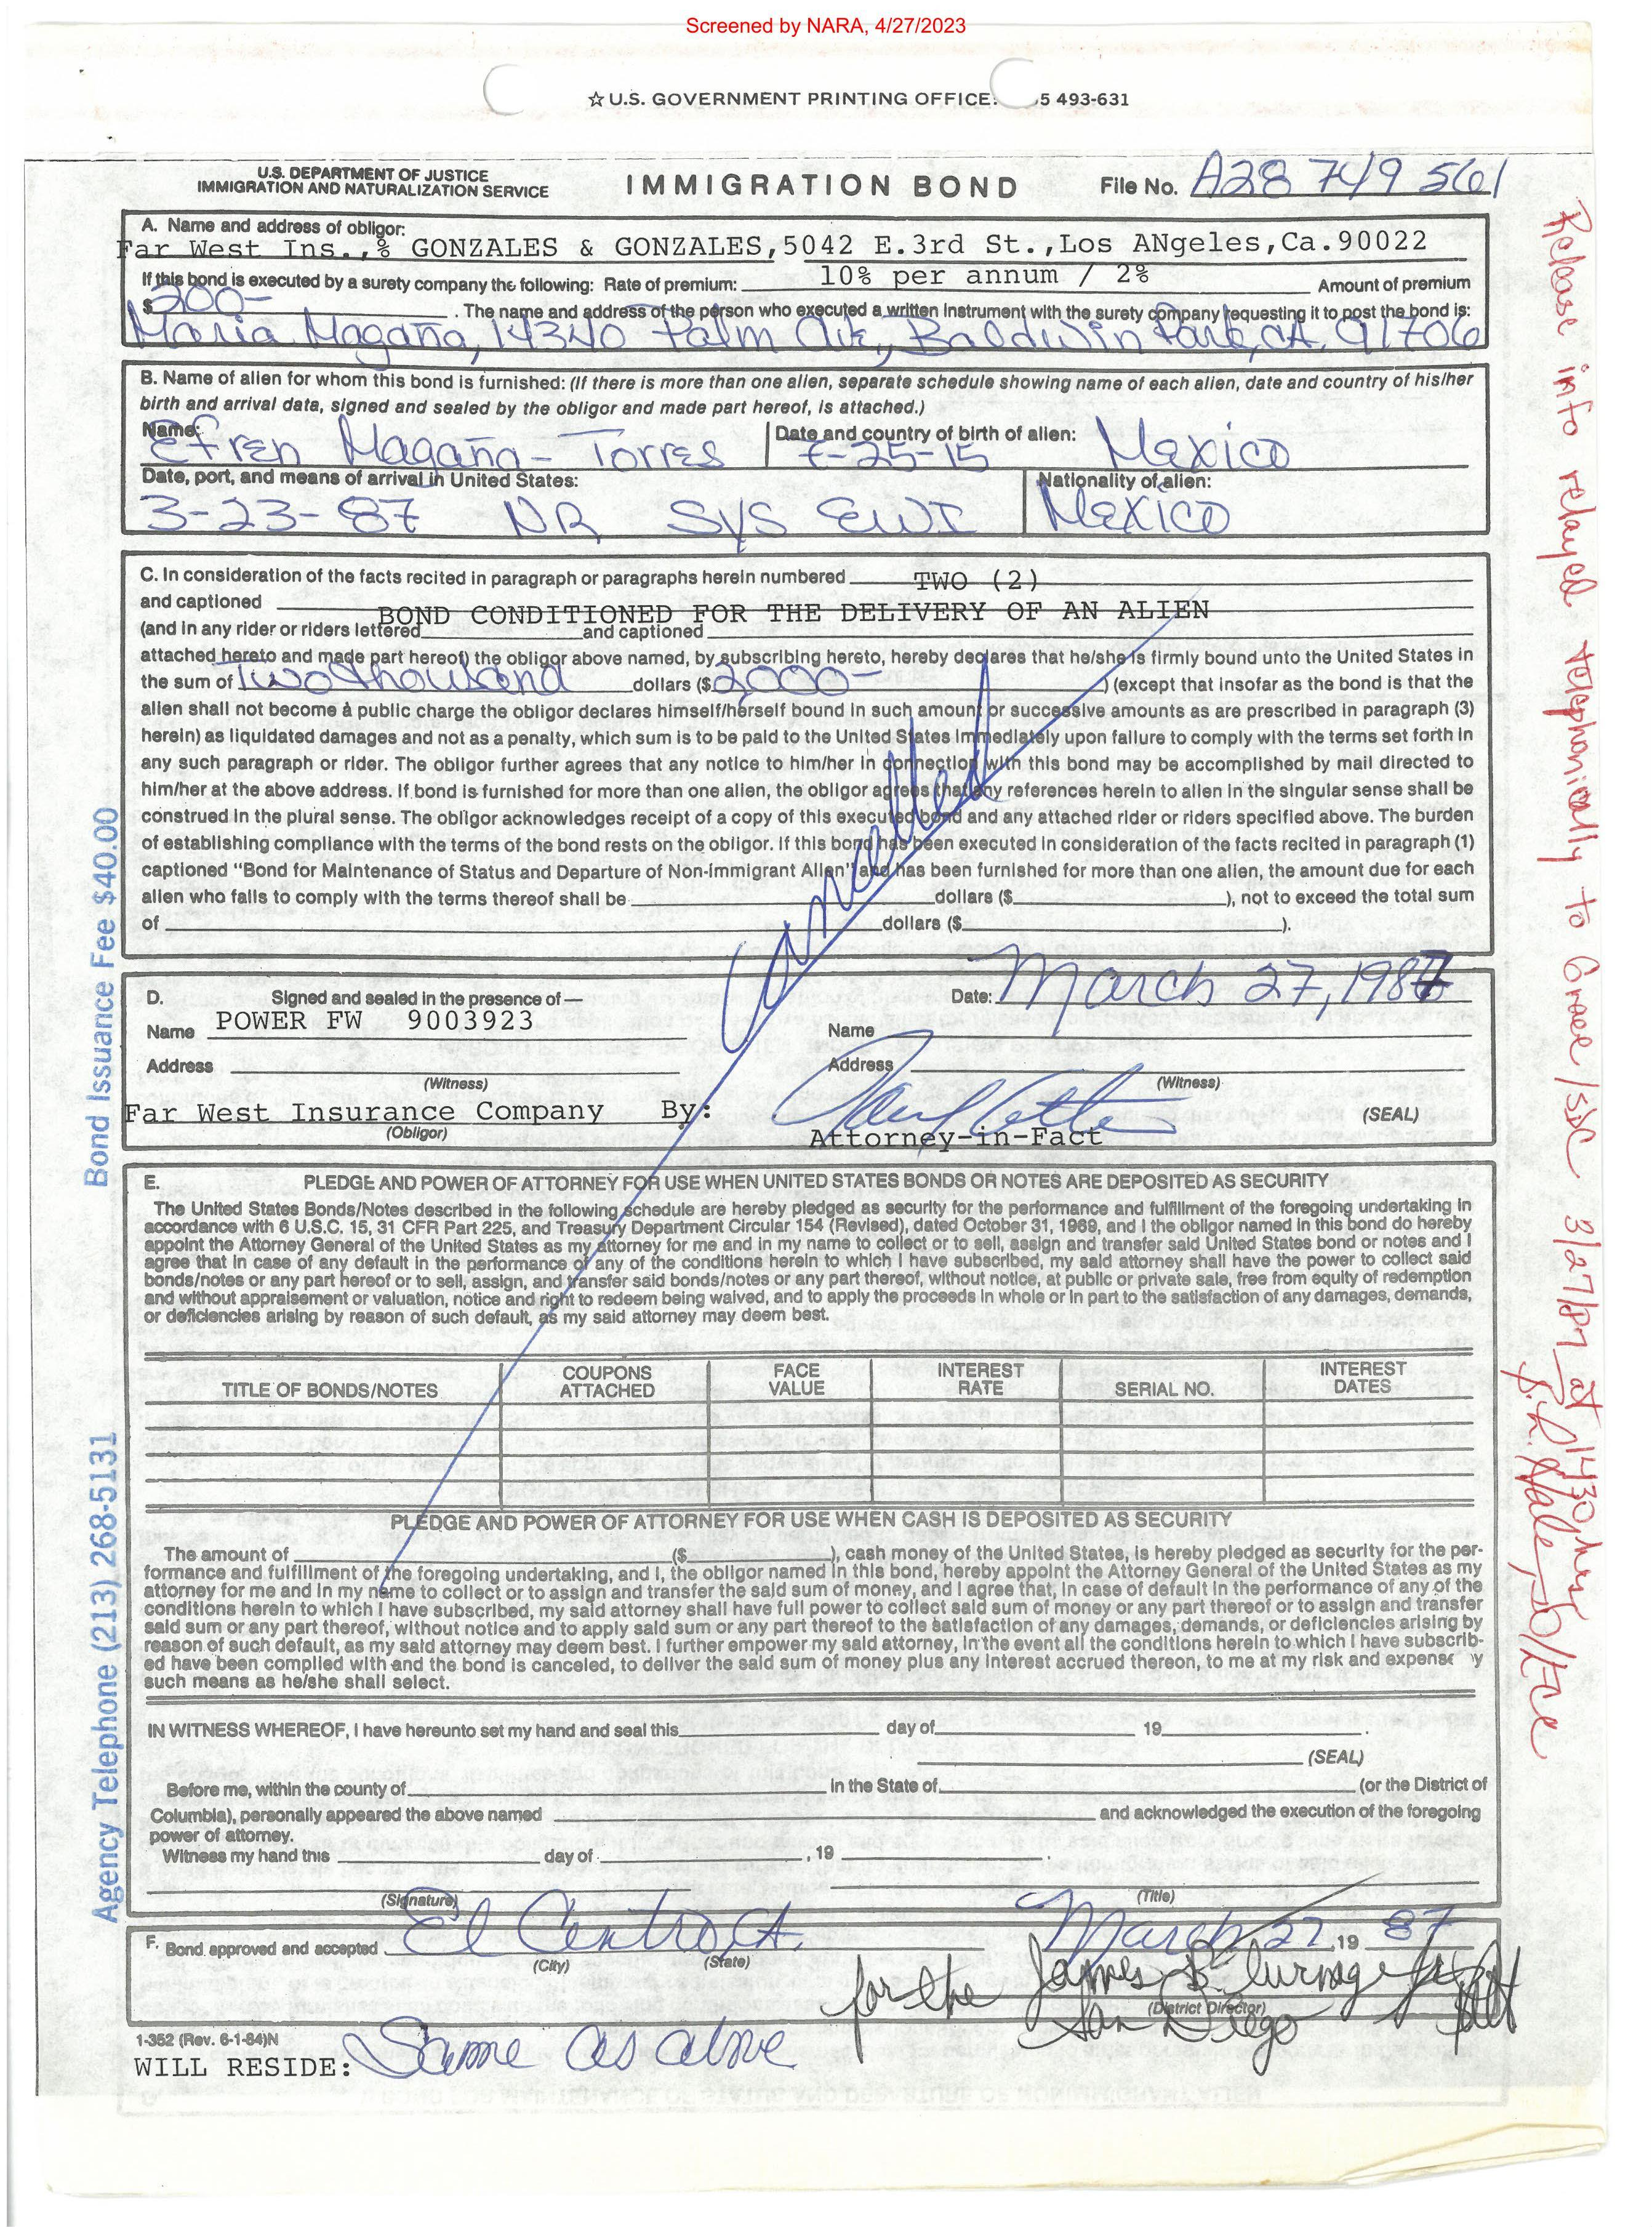 Screened by NARA, 4/27/2023
☆ U.S. GOVERNMENT PRINTING OFFICE: 5 493-631
U.S. DEPARTMENT OF JUSTICE
IMMIGRATION AND NATURALIZATION SERVICE
IMMIGRATION BOND
File No. A28 749 561
A. Name and address of obligor:
Far West Ins.,% GONZALES & GONZALES,5042 E.3rd St.,Los ANgeles,Ca.90022
If this bond is executed by a surety company the following: Rate of premium: 10% per annum / 2% Amount of premium
$ 200- . The name and address of the person who executed a written instrument with the surety company requesting it to post the bond is:
Maria Magaña, 14340 Palm Ave, Baldwin Park, CA. 91706
B. Name of alien for whom this bond is furnished: (If there is more than one alien, separate schedule showing name of each alien, date and country of his/her
birth and arrival data, signed and sealed by the obligor and made part hereof, is attached.)
Name: Efren Magaña-Torres
Date and country of birth of alien: 7-25-15 Mexico
Date, port, and means of arrival in United States:
3-23-87 NR SYS EWI
Nationality of alien:
Mexico
C. In consideration of the facts recited in paragraph or paragraphs herein numbered TWO (2)
and captioned BOND CONDITIONED FOR THE DELIVERY OF AN ALIEN
(and in any rider or riders lettered and captioned
attached hereto and made part hereof) the obligor above named, by subscribing hereto, hereby declares that he/she is firmly bound unto the United States in
the sum of Two thousand dollars ($ 2,000- ) (except that insofar as the bond is that the
alien shall not become a public charge the obligor declares himself/herself bound in such amount or successive amounts as are prescribed in paragraph (3)
herein) as liquidated damages and not as a penalty, which sum is to be paid to the United States immediately upon failure to comply with the terms set forth in
any such paragraph or rider. The obligor further agrees that any notice to him/her in connection with this bond may be accomplished by mail directed to
him/her at the above address. If bond is furnished for more than one alien, the obligor agrees that any references herein to alien in the singular sense shall be
construed in the plural sense. The obligor acknowledges receipt of a copy of this executed bond and any attached rider or riders specified above. The burden
of establishing compliance with the terms of the bond rests on the obligor. If this bond has been executed in consideration of the facts recited in paragraph (1)
captioned "Bond for Maintenance of Status and Departure of Non-Immigrant Alien" and has been furnished for more than one alien, the amount due for each
alien who fails to comply with the terms thereof shall be dollars ($ ), not to exceed the total sum
of dollars ($ ).
Cancelled
D. Signed and sealed in the presence of —
Date: March 27, 1987
Name POWER FW 9003923
Name
Address
(Witness)
Address
(Witness)
Far West Insurance Company By:
(Obligor)
(SEAL)
Attorney-in-Fact
E. PLEDGE AND POWER OF ATTORNEY FOR USE WHEN UNITED STATES BONDS OR NOTES ARE DEPOSITED AS SECURITY
The United States Bonds/Notes described in the following schedule are hereby pledged as security for the performance and fulfillment of the foregoing undertaking in
accordance with 6 U.S.C. 15, 31 CFR Part 225, and Treasury Department Circular 154 (Revised), dated October 31, 1969, and I the obligor named in this bond do hereby
appoint the Attorney General of the United States as my attorney for me and in my name to collect or to sell, assign and transfer said United States bond or notes and I
agree that in case of any default in the performance of any of the conditions herein to which I have subscribed, my said attorney shall have the power to collect said
bonds/notes or any part hereof or to sell, assign, and transfer said bonds/notes or any part thereof, without notice, at public or private sale, free from equity of redemption
and without appraisement or valuation, notice and right to redeem being waived, and to apply the proceeds in whole or in part to the satisfaction of any damages, demands,
or deficiencies arising by reason of such default, as my said attorney may deem best.
TITLE OF BONDS/NOTES
COUPONS ATTACHED
FACE VALUE
INTEREST RATE
SERIAL NO.
INTEREST DATES
PLEDGE AND POWER OF ATTORNEY FOR USE WHEN CASH IS DEPOSITED AS SECURITY
The amount of ($ ), cash money of the United States, is hereby pledged as security for the per-
formance and fulfillment of the foregoing undertaking, and I, the obligor named in this bond, hereby appoint the Attorney General of the United States as my
attorney for me and in my name to collect or to assign and transfer the said sum of money, and I agree that, in case of default in the performance of any of the
conditions herein to which I have subscribed, my said attorney shall have full power to collect said sum of money or any part thereof or to assign and transfer
said sum or any part thereof, without notice and to apply said sum or any part thereof to the satisfaction of any damages, demands, or deficiencies arising by
reason of such default, as my said attorney may deem best. I further empower my said attorney, in the event all the conditions herein to which I have subscrib-
ed have been complied with and the bond is canceled, to deliver the said sum of money plus any interest accrued thereon, to me at my risk and expense y
such means as he/she shall select.
IN WITNESS WHEREOF, I have hereunto set my hand and seal this day of 19 .
(SEAL)
Before me, within the county of in the State of (or the District of
Columbia), personally appeared the above named and acknowledged the execution of the foregoing
power of attorney.
Witness my hand this day of , 19 .
(Signature)
(Title)
F. Bond approved and accepted El Centro, CA. March 27, 19 87
(City) (State)
for the James B. Turnage
(District Director)
San Diego
I-352 (Rev. 6-1-84)N
WILL RESIDE: Same as above
Bond Issuance Fee $40.00
Agency Telephone (213) 268-5131
Release info relayed telephonically to Grace/SDC 3/27/87 at 1430 hrs